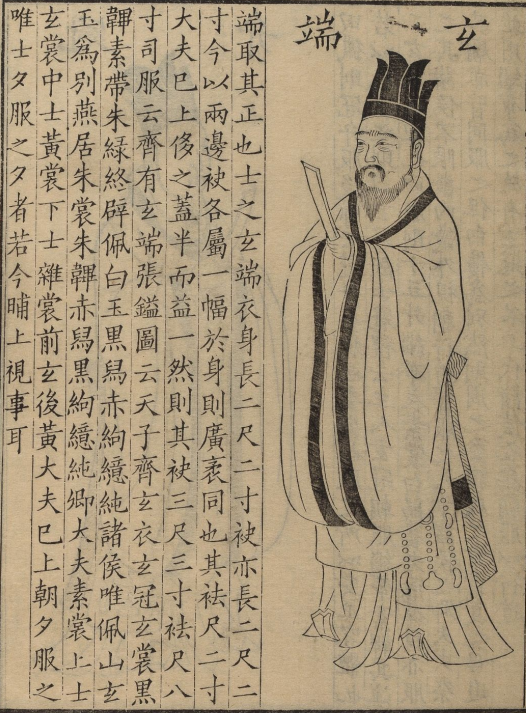 玄端
端取其正也士之玄端衣身長二尺二寸袂亦長二尺二
寸今以兩邊袂各屬一幅於身則廣袤同也其袪尺二寸
大夫巳上侈之蓋半而益一然則其袂三尺三寸袪尺八
寸司服云齊有玄端張鎰圖云天子齊玄衣玄冠玄裳黑
韠素帶朱緑終辟佩白玉黑舄赤絇繶純諸侯唯佩山玄
玉爲別燕居朱裳朱韠赤舄黑絇繶純卿大夫素裳上士
玄裳中士黃裳下士雜裳前玄後黃大夫巳上朝夕服之
唯士夕服之夕者若今晡上視事耳